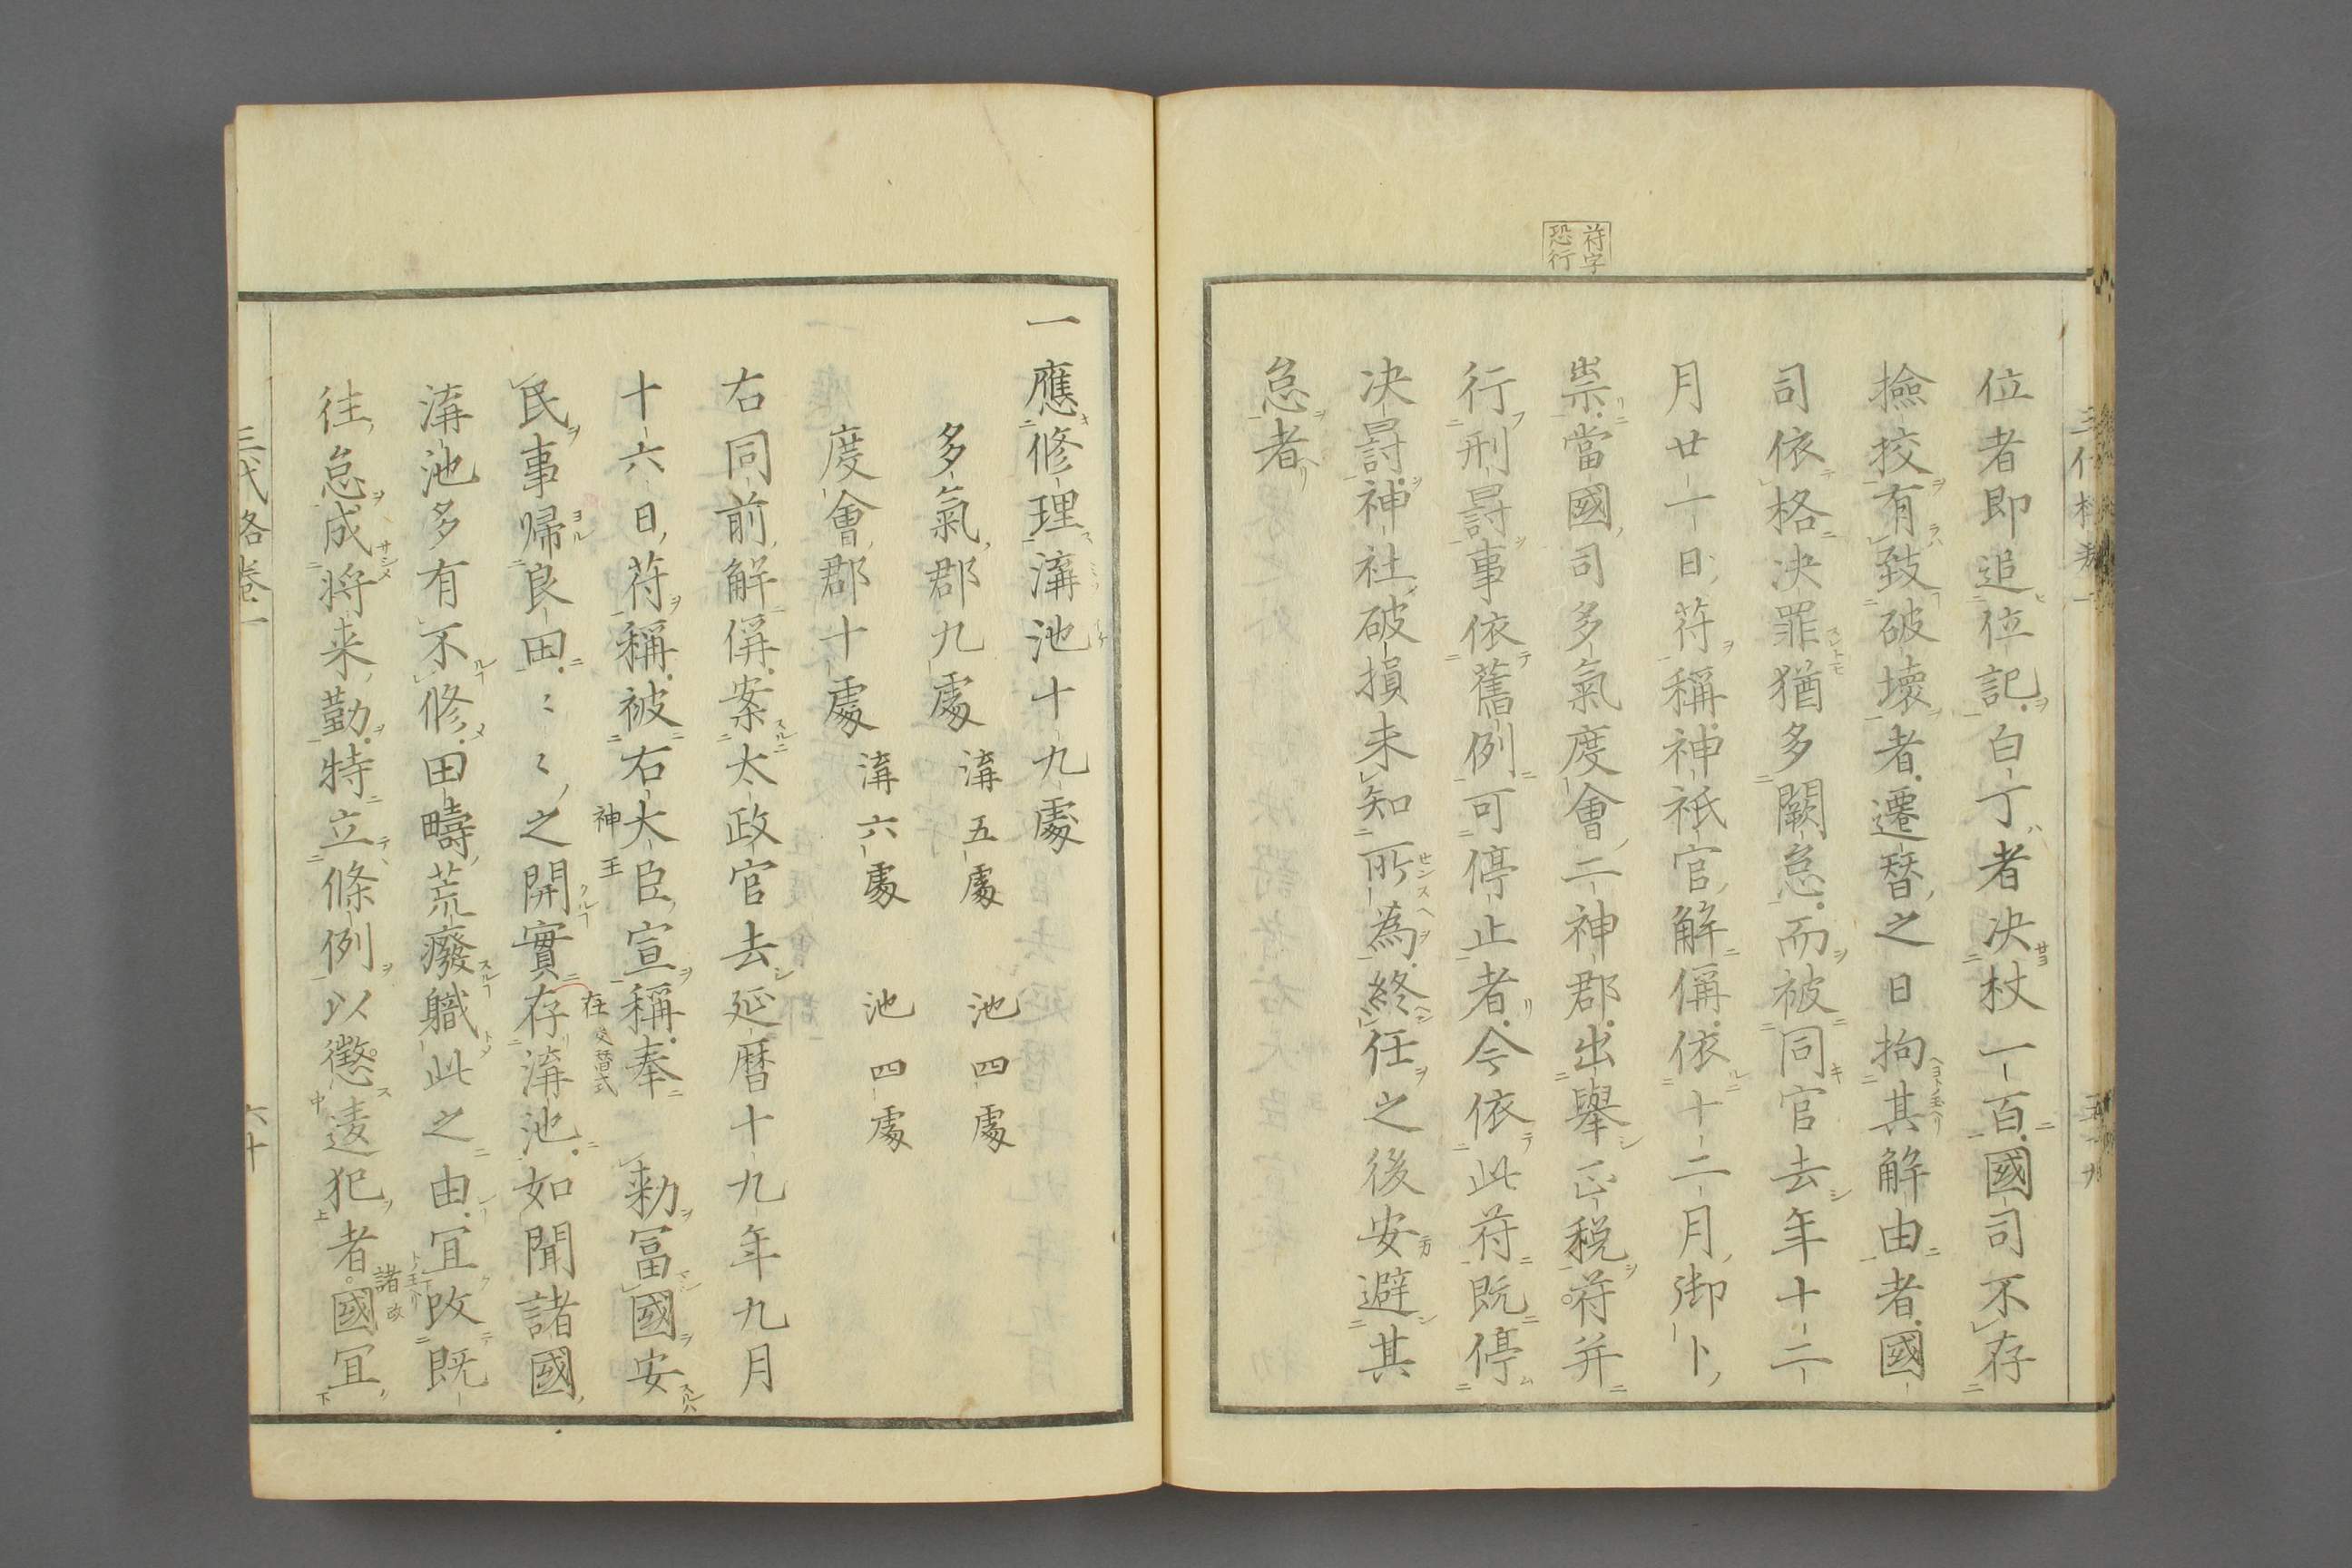 符字
恐行
位者即追位記白丁者决杖一百國司不存
撿挍有致破壊者遷替之日拘其解由者國
司依格决罪猶多闕怠而被同官去年十二
月廿一日符稱神祇官解偁依十二月御卜
祟當國司多氣度會二神郡出舉正税符并
行刑罸事依舊例可停止者今依此符既停
决罸神社破損未知所為終任之後安避其
怠者
一應修理溝池十九處
多氣郡九處 溝五處 池四處
度會郡十處 溝六處 池四處
右同前解偁案太政官去延暦十九年九月
十六日符稱被右大臣宣稱奉 勅冨國安
神王
民事帰良田〻〻之開實存溝池如聞諸國
在 交替式
溝池多有不修田疇荒廢職此之由宜改既
往怠成将来勤特立條例以懲違犯者國宜
諸 改
三代格卷一
六十